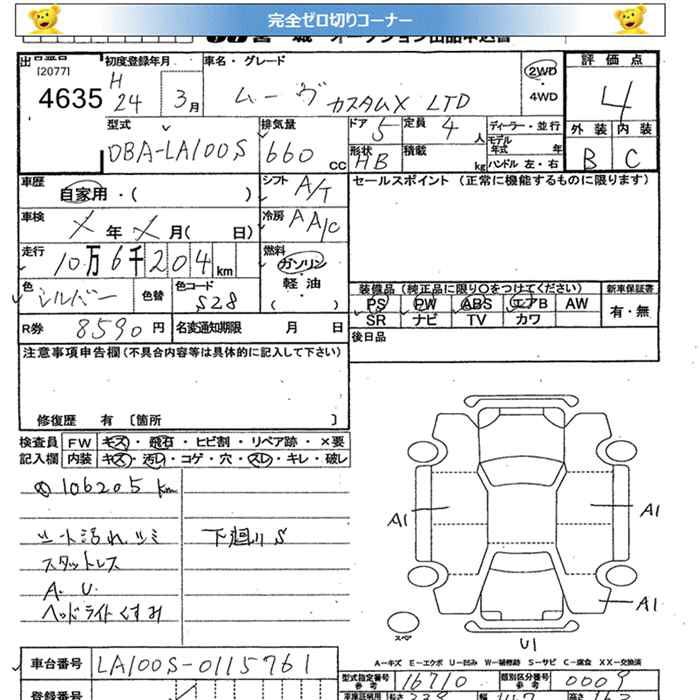 完全ゼロ切りコーナー
出 [2077] 初度登録年月 車名・グレード 評価点
4635 H24 3月 ムーヴ カスタムX LTD 2WD 4WD 4
型式 排気量 ドア 5 定員 4人 ディーラー・並行 外装 内装
DBA-LA100S 660cc 形状 HB 積載 kg モデル年式 年 ハンドル 左・右 B C
車歴 自家用・( ) シフト A/T セールスポイント (正常に機能するものに限ります)
車検 メ年メ月( 日) 冷房 AA/C
走行 10万6千204km 燃料 ガソリン・軽油 ( )
色 シルバー 色替 色コード S28
装備品 (純正品に限り○をつけてください) 新車保証書
PS PW ABS エアB AW 有・無
SR ナビ TV カワ
R券 8590円 名変通知期限 月 日 後日品
注意事項申告欄 (不具合内容等は具体的に記入して下さい)
修復歴 有 〔箇所 〕
検査員 FW キズ・飛石・ヒビ割・リペア跡・×要
記入欄 内装 キズ・汚レ・コゲ・穴・スレ・キレ・破レ
106205 Km
シート汚れ シミ 下廻り S
スタットレス
A. U.
ヘッドライトくすみ
A1
A1
A1
スペア
U1
A-キズ E-エクボ U-凹み W-補修跡 S-サビ C-腐食 XX-交換済
車台番号 LA100S-0115761 型式指定番号 参考 16710 類別区分番号 参考 0009
登録番号